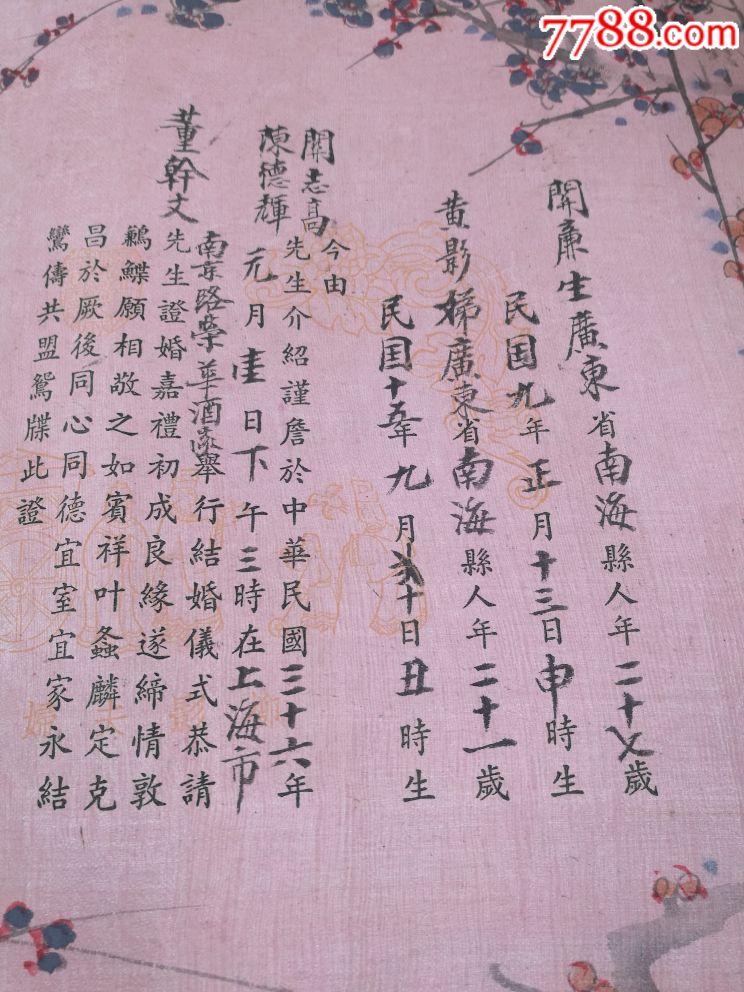 7788.com
關廉生廣東省南海縣人年二十七歲
民国九年正月十三日申時生
黄影嫦廣東省南海縣人年二十一歲
民国十五年九月十日丑時生
今由
關志高
陳德輝先生介紹謹詹於中華民國三十六年
元月日下午三時在上海市
南京路榮華酒家舉行結婚儀式恭請
董幹文先生證婚嘉禮初成良緣遂締情敦
鶼鰈願相敬之如賓祥叶螽麟定克
昌於厥後同心同德宜室宜家永結
鸞儔共盟鴛牒此證